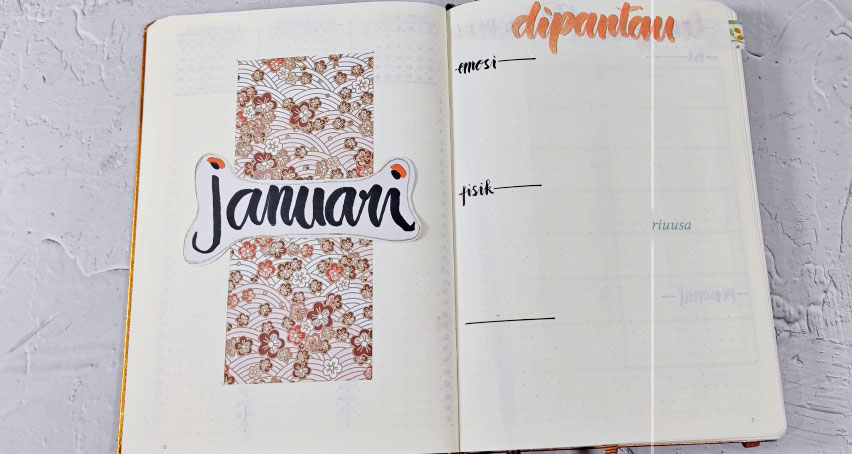 januari
dipantau
emosi
fisik
riuusa
6
7